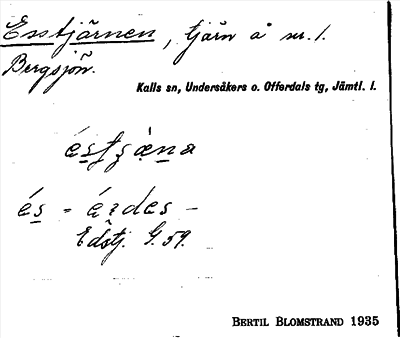 Esstjärnen, tjärn å nr. 1.
Bergsjön.
Kalls sn, Undersåkers o. Offerdals tg, Jämtl. l.
és = érdes –
Edstj. G. 59.
BERTIL BLOMSTRAND 1935